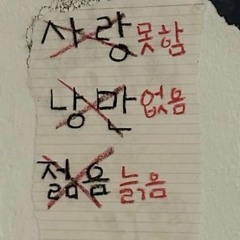 사랑 못함
낭만 없음
젊음 늙음